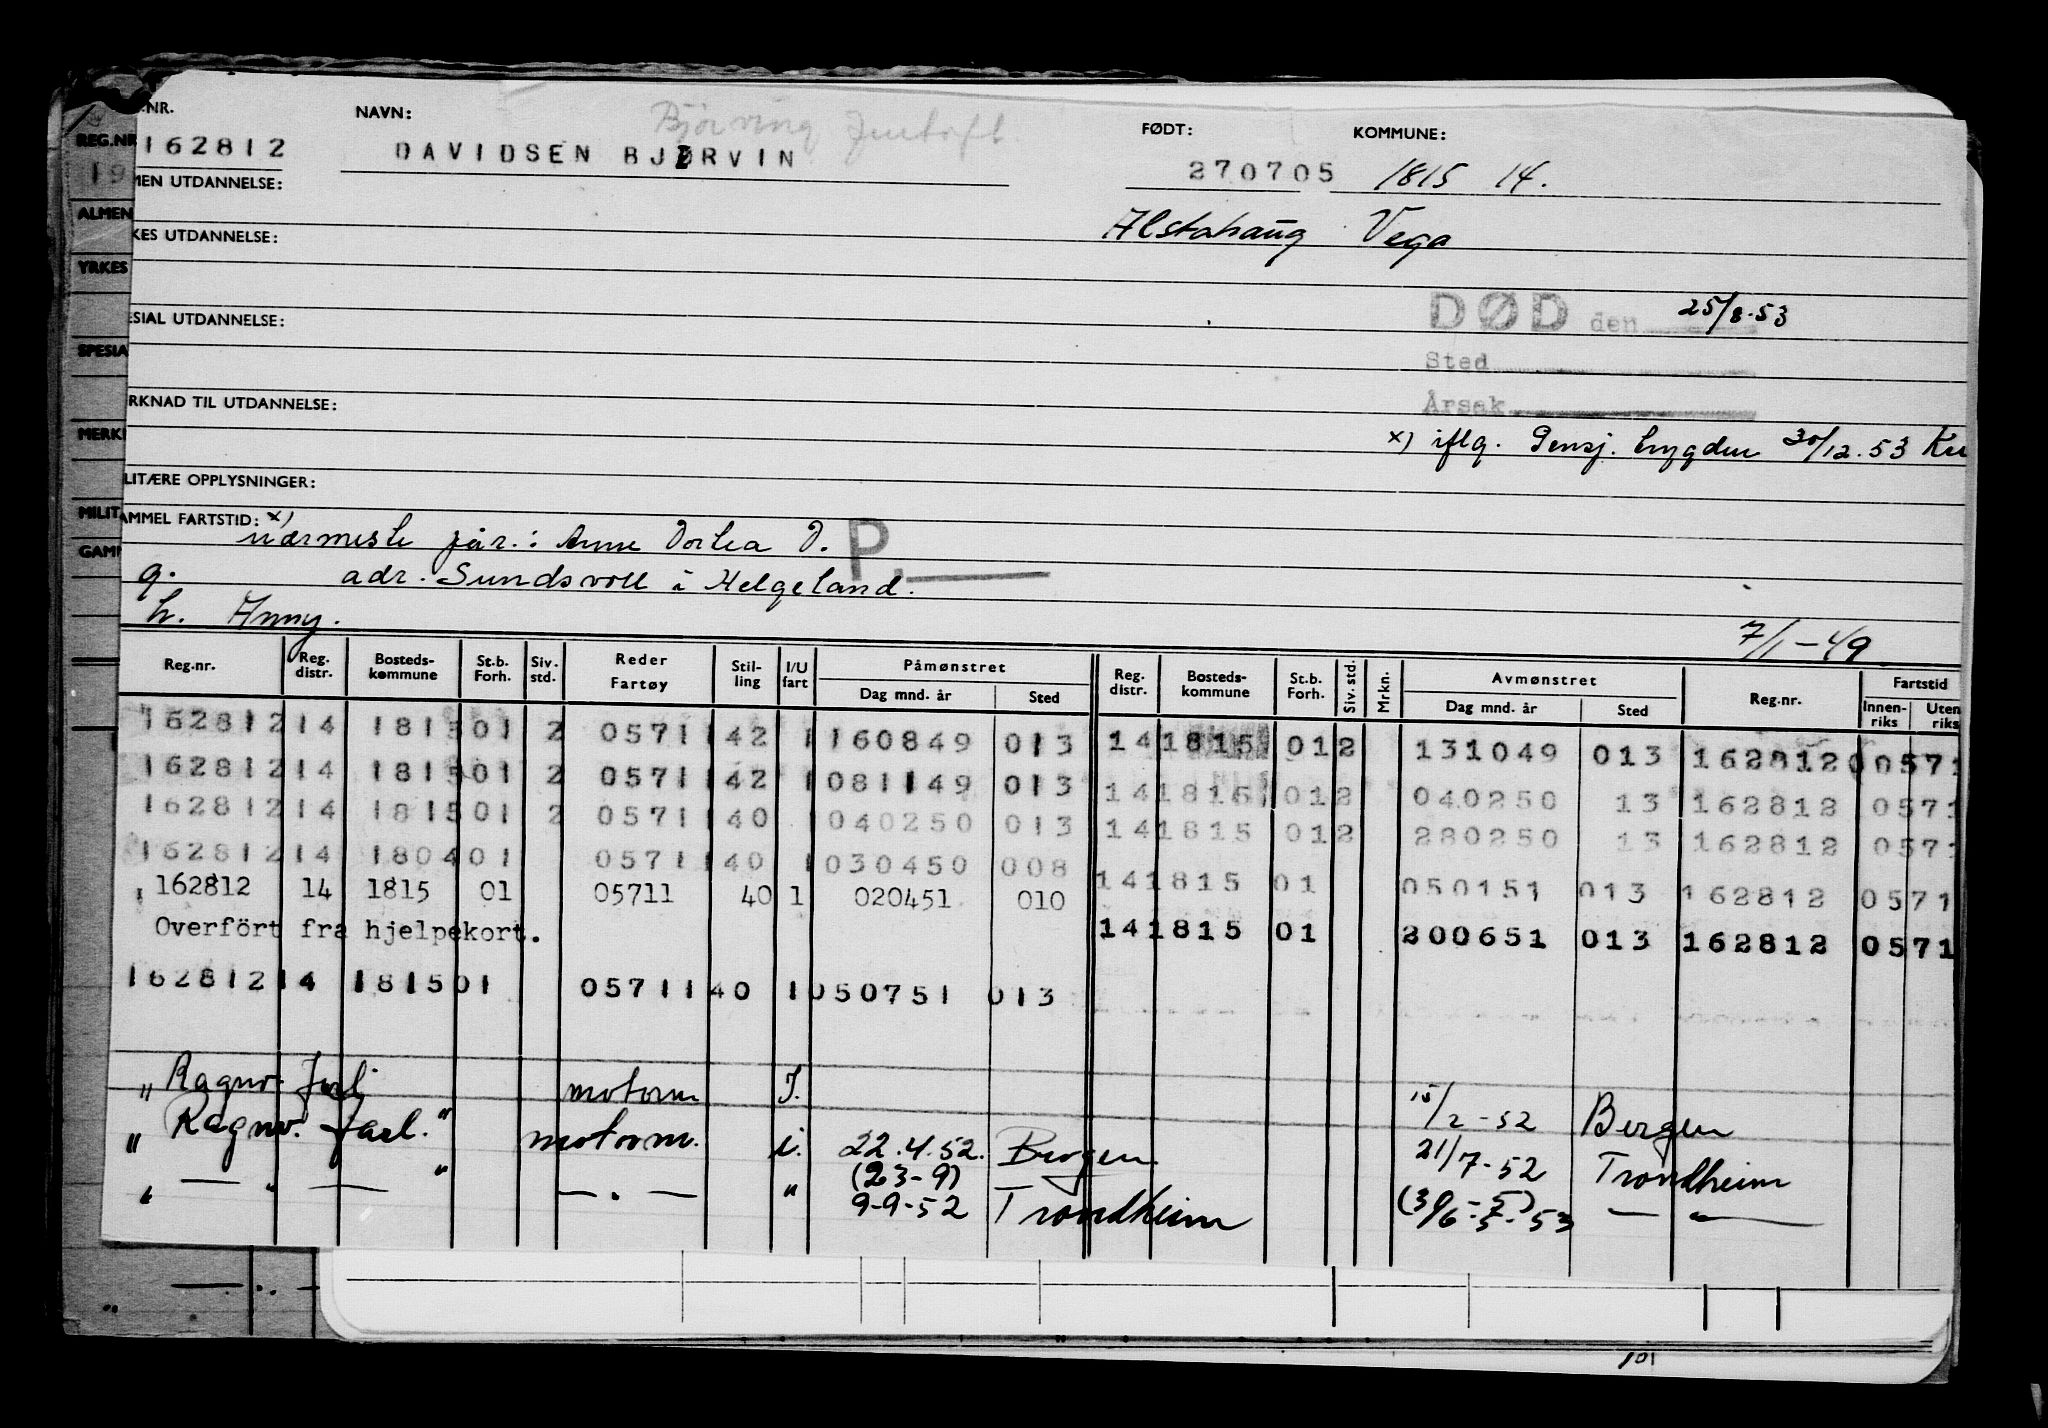 .NR. NAVN: FØDT: KOMMUNE:
REG.NR
162812 DAVIDSEN BJØRVIN 270705 1815 14.
19
MEN UTDANNELSE:
ALMEN Alstahaug Vega
KES UTDANNELSE:
YRKES
DØD den 25/8-53
ESIAL UTDANNELSE:
SPESIA Sted
Årsak
ERKNAD TIL UTDANNELSE:
MERK x) iflg. 30/12.53
LITÆRE OPPLYSNINGER:
MILIT
AMMEL FARTSTID: x)
nærmeste pår.: Anne Dortea D. P.
GAM
g. adr. Sundsvoll i Helgeland.
h. Anny. 7/1-49
Reg.nr. Reg. distr. Bosteds-kommune St.b. Forh. Siv. std. Reder Fartøy Stil-ling I/U fart Påmønstret Dag mnd. år Sted Reg. distr. Bosteds-kommune St.b. Forh. Siv. std. Mrkn. Avmønstret Dag mnd. år Sted Reg.nr. Fartstid Innen-riks Uten riks
162812 14 1815 01 2 05711 42 1 160849 013 14 1815 01 2 131049 013 162812 0 0571
162812 14 1815 01 2 05711 42 1 081149 013 14 1815 01 2 040250 13 162812 0571
162812 14 1815 01 2 05711 40 1 040250 013 14 1815 01 2 280250 13 162812 0571
162812 14 1804 01 05711 40 1 030450 008 14 1815 01 050151 013 162812 0571
162812 14 1815 01 05711 40 1 020451 010
Overfört fra hjelpekort. 14 1815 01 200651 013 162812 0571
162812 14 1815 01 05711 40 1 050751 013
" Ragnv. Jarl motorm I. 15/2-52 Bergen
" Ragnv. Jarl." motorm. i. 22.4.52. Bergen 21/7-52 Trondheim
(23-9)
" — " — " — . — " 9-9-52 Trondheim 6-5-53 — " —
101